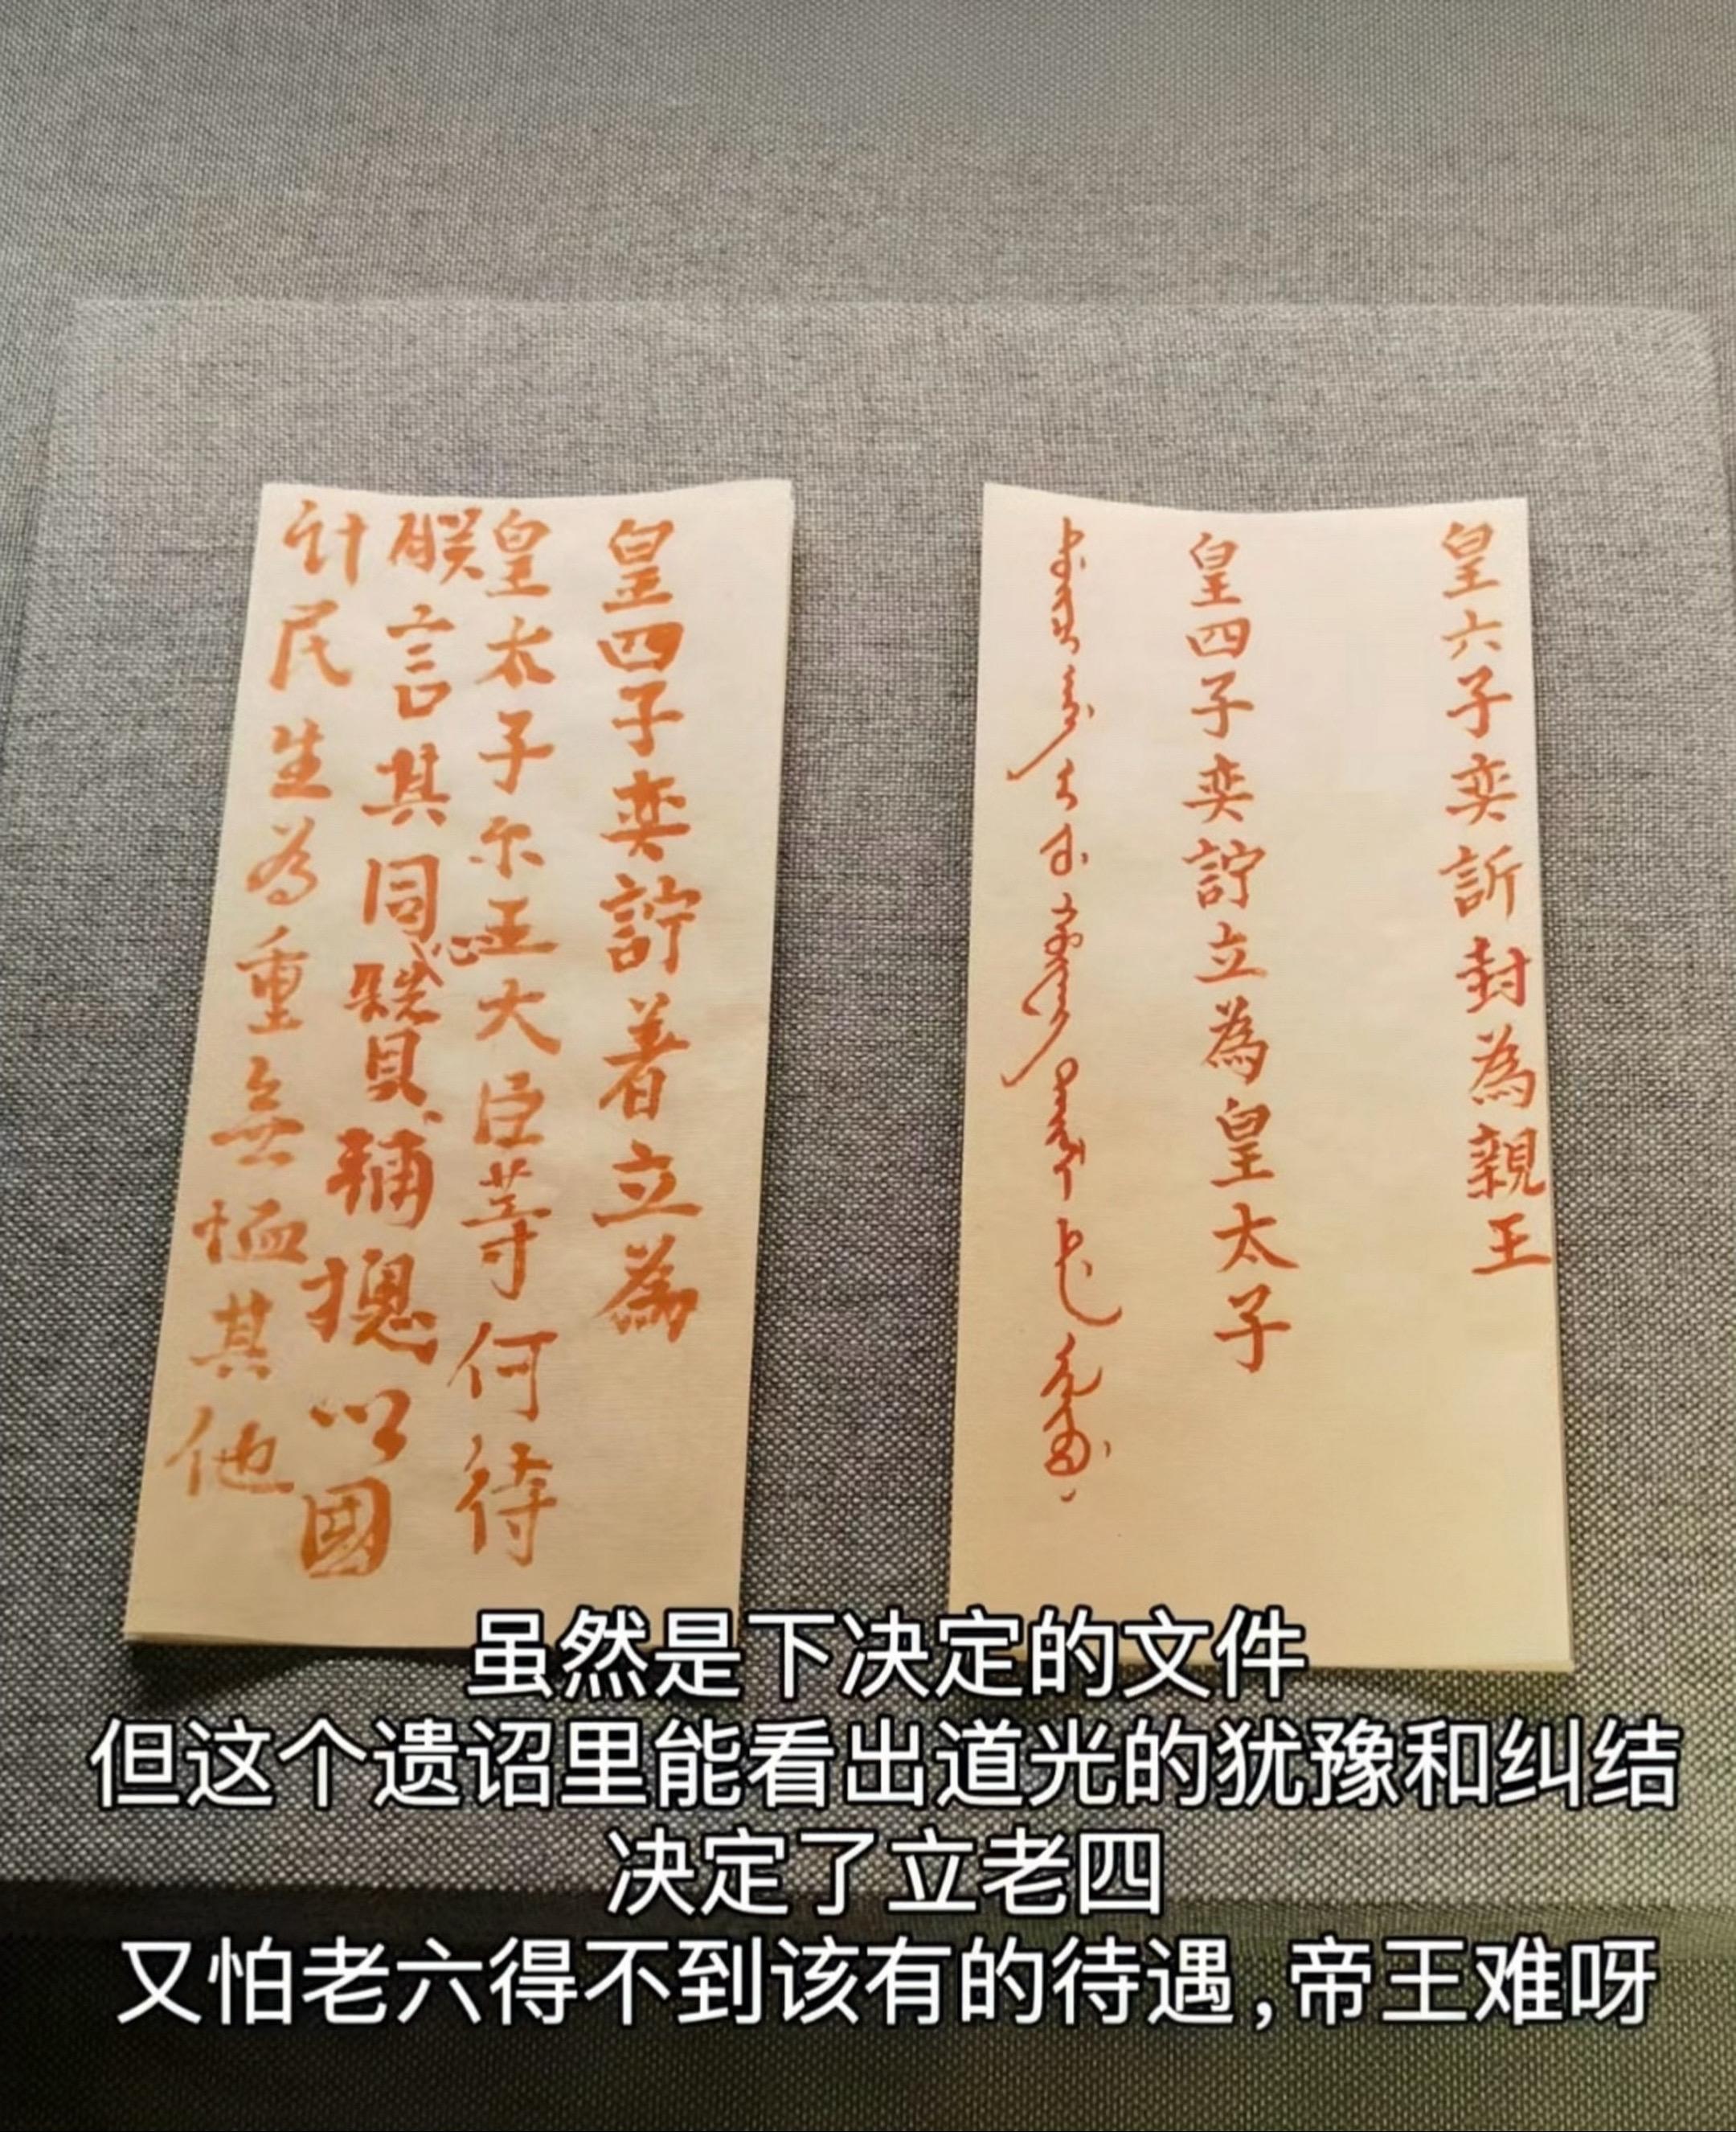 皇六子奕訢封為親王
皇四子奕詝立為皇太子
皇四子奕詝着立為
皇太子尔王大臣等何待
朕言其同心贊輔總以國
計民生為重無恤其他
虽然是下决定的文件
但这个遗诏里能看出道光的犹豫和纠结
决定了立老四
又怕老六得不到该有的待遇,帝王难呀